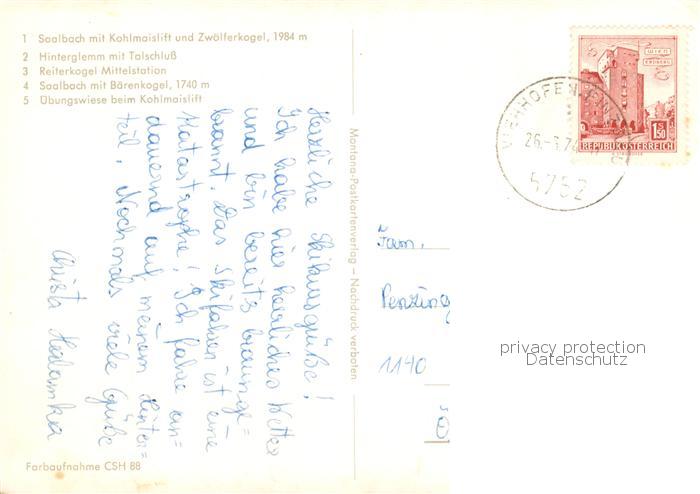 1 Saalbach mit Kohlmaislift und Zwölferkogel, 1984 m
2 Hinterglemm mit Talschluß
3 Reiterkogel Mittelstation
4 Saalbach mit Bärenkogel, 1740 m
5 Übungswiese beim Kohlmaislift
Herzliche Skikursgrüße!
Ich habe hier herrliches Wetter
und bin bereits braunge=
brannt. Das Skifahren ist eine
Katastrophe! Ich fahre an=
dauernd auf meinem Hinter=
teil. Nochmals viele Grüße
Christa
Montana-Postkartenverlag – Nachdruck verboten
Farbaufnahme CSH 88
WIEN
ERDBERG
1.50
S
REPUBLIK ÖSTERREICH
VIEHHOFEN
26.-3.74
5752
Fam.
Penzing
1140
Ö
privacy protection
Datenschutz